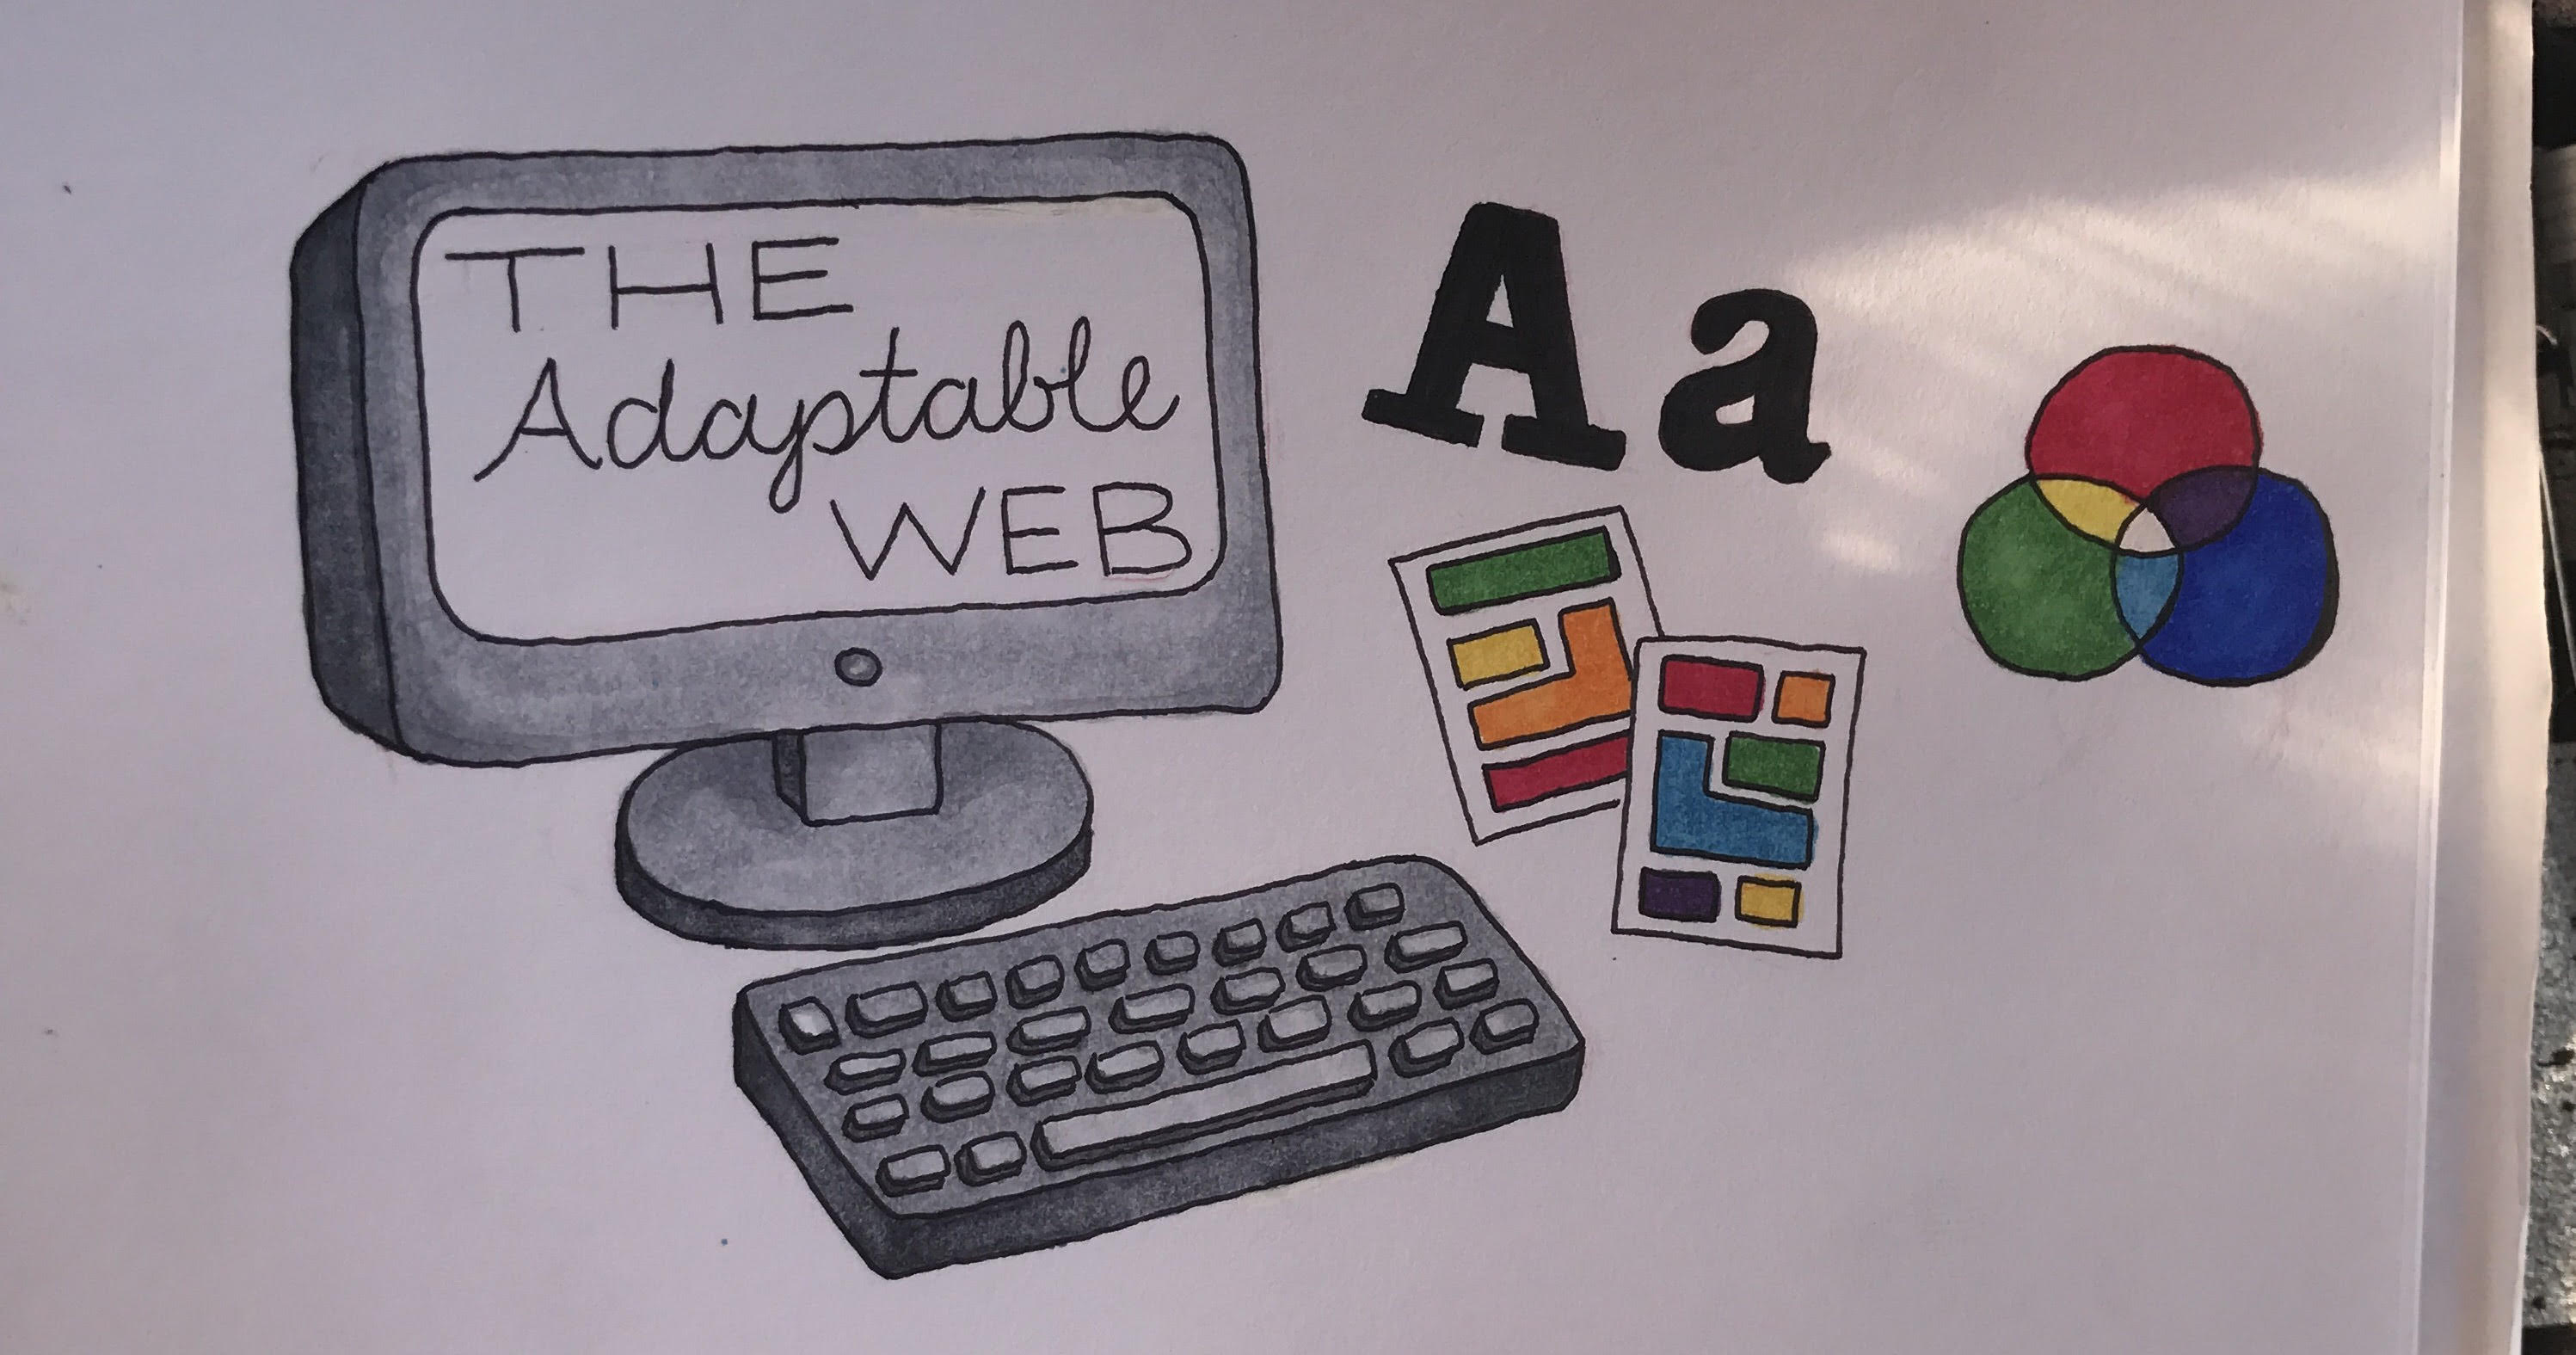 THE
Adaptable
WEB
Aa